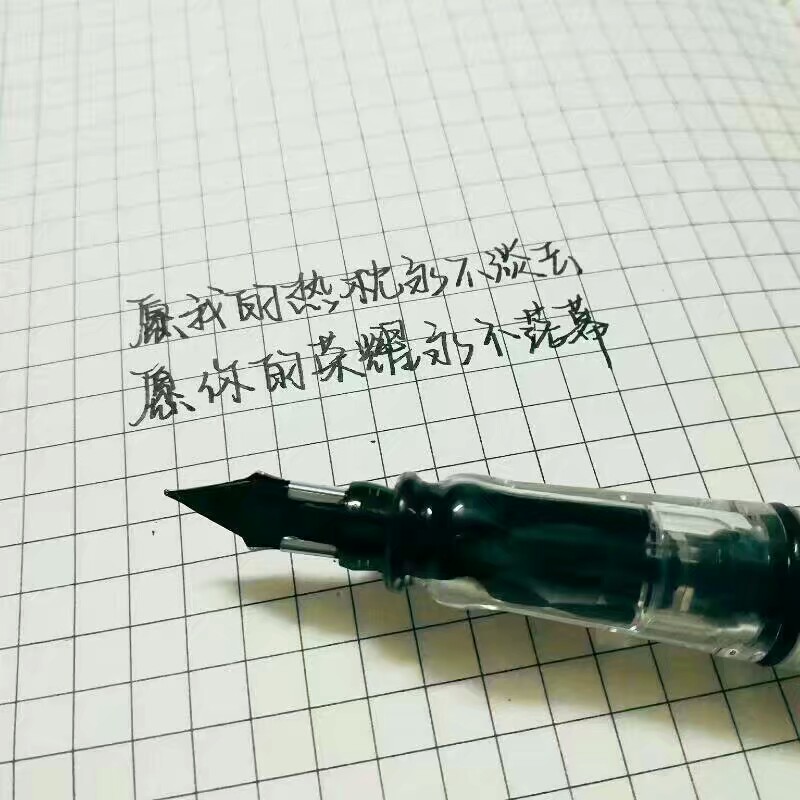 愿我的热忱永不淡去
愿你的荣耀永不落幕